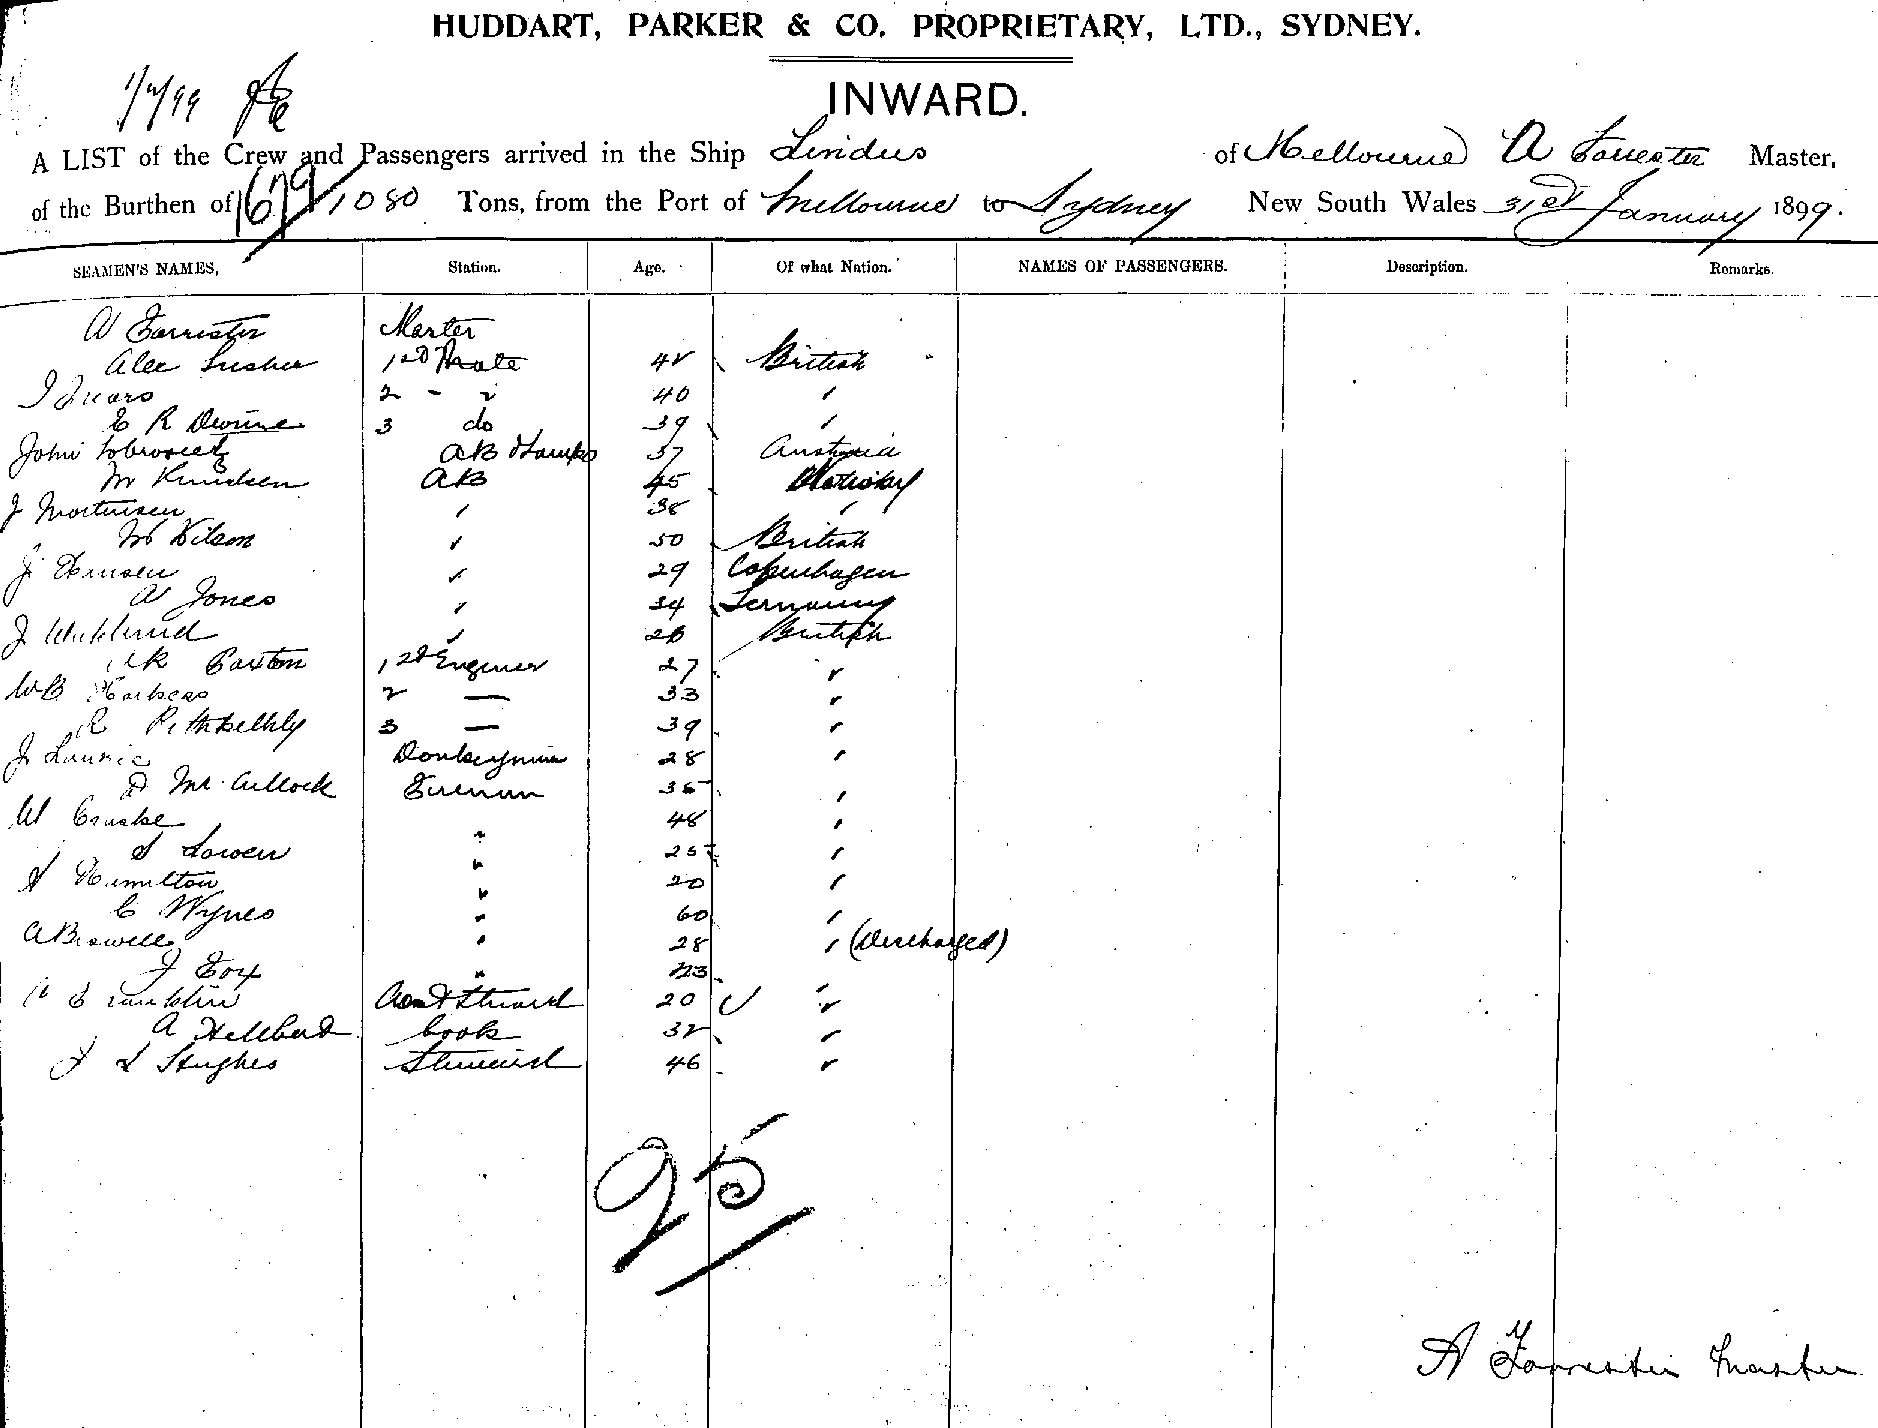 HUDDART, PARKER & CO. PROPRIETARY, LTD., SYDNEY.
INWARD.
A LIST of the Crew and Passengers arrived in the Ship Lindus of Melbourne A Forrester Master,
of the Burthen of 1679/1080 Tons, from the Port of Melbourne to Sydney New South Wales 31st January 1899.
SEAMEN'S NAMES, Station. Age. Of what Nation. NAMES OF PASSENGERS. Description. Remarks.
A Forrester Master
Alec Lusher 1st Mate 42 British
J 2 - " 40 "
E R Devine 3 do 39 "
John AB & Lamps 37 Austria
M Knudsen AB 45
J Mortensen " 38 "
M Wilson " 50 British
J Hansen " 29 Copenhagen
A Jones " 34 Germany
J Wicklund " 26 British
Paxton 1st Engineer 27 "
WB Harkess 2 — 33 "
R Pittkelthly 3 — 39 "
J Laurie Donkeyman 28 "
D McCullock Fireman 35 "
W Cruske " 48 "
S Lowen " 25 "
A Hamilton " 20 "
C Wynes " 60 "
A Brawell " 28 " (Discharged)
J Fox " 23 "
Franklin Asst Steward 20 "
A Hellberd Cook 32 "
J L Hughes Steward 46 "
25
A Forrester Master